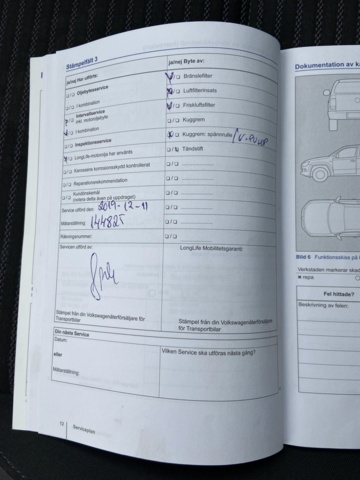 Stämpelfält 3
ja/nej Har utförts:
ja/nej Byte av:
Oljebytesservice
Bränslefilter
I kombination
Luftfilterinsats
Intervallservice
inkl. motoroljebyte
Friskluftsfilter
I kombination
Kuggrem
Inspektionsservice
Kuggrem: spännrulle / V-PUMP
LongLife-motorolja har använts
Tändstift
Karossens korrosionsskydd kontrollerat
Reparationsrekommendation
Kundönskemål
(notera detta även på uppdraget)
Service utförd den: 2019-12-11
Mätarställning: 144825
Räkningsnummer:
Servicen utförd av:
LongLife Mobilitetsgaranti
Stämpel från din Volkswagenåterförsäljare för
Transportbilar
Stämpel från din Volkswagenåterförsäljare
för Transportbilar
Din nästa Service
Datum:
Vilken Service ska utföras nästa gång?
eller
Mätarställning:
12
Serviceplan
Dokumentation av k
Bild 6 Funktionsskiss på
Verkstaden markerar skad
repa
Fel hittade?
Beskrivning av felen: